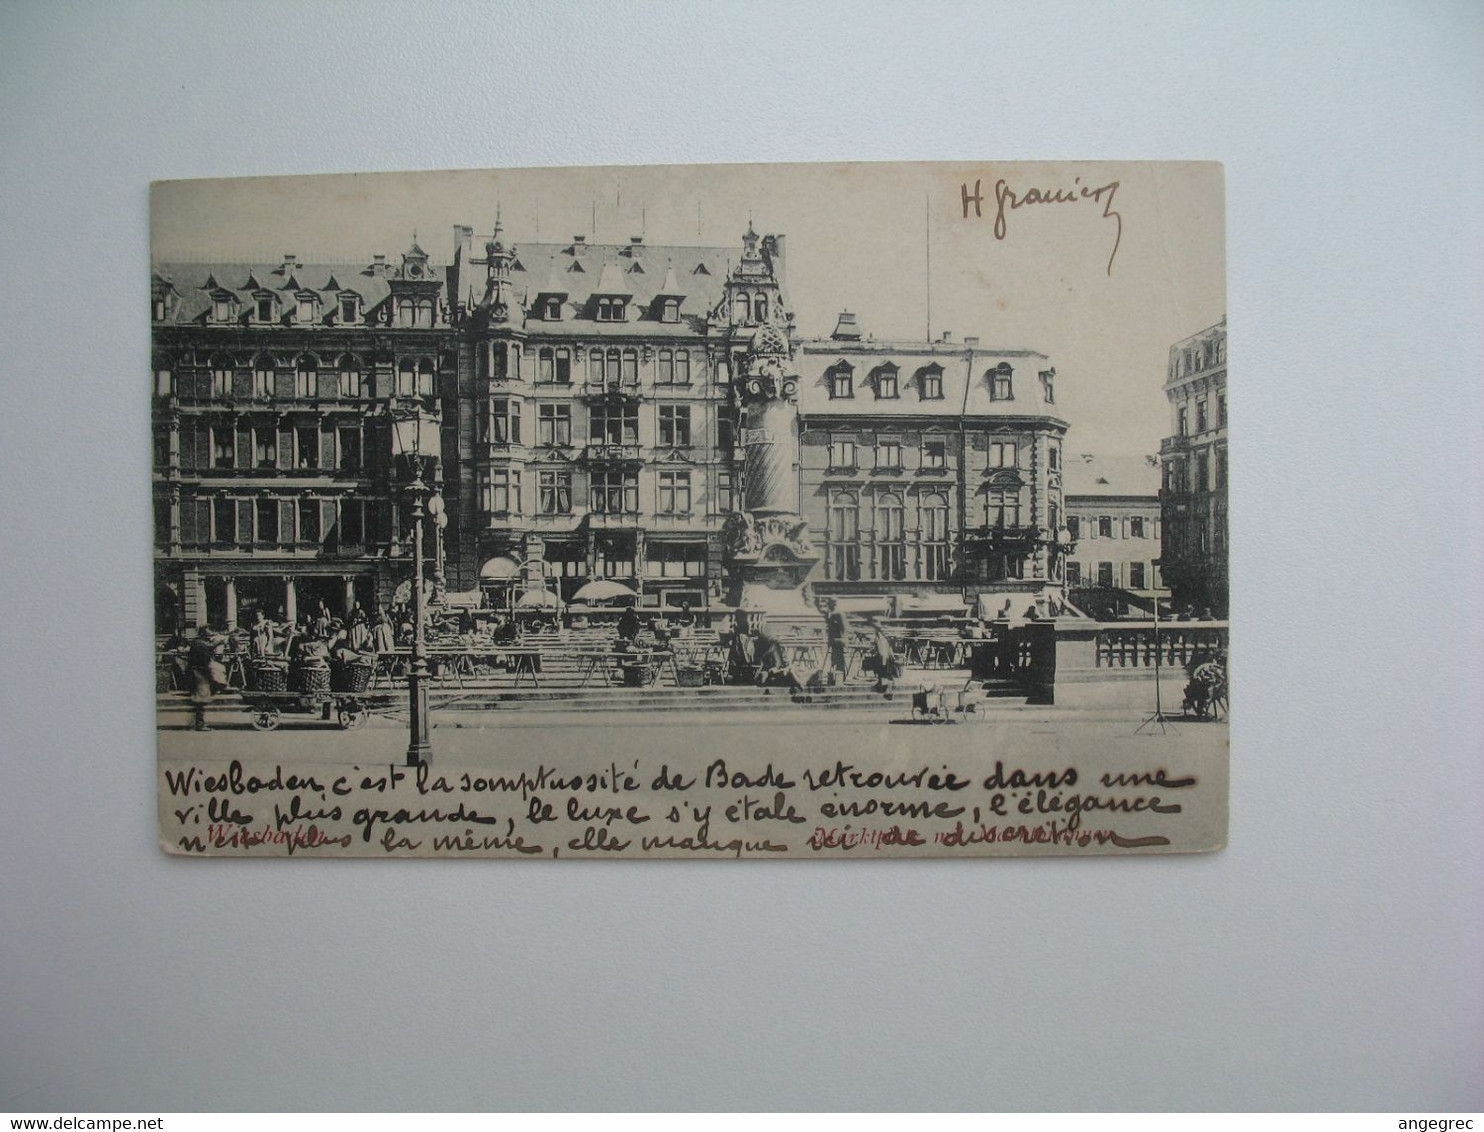 H Granier
Wiesbaden, c'est la somptuosité de Bade retrouvée dans une
ville plus grande, le luxe s'y étale énorme, l'élégance
n'est plus la même, elle manque ici de discrétion
Wiesbaden
Marktplatz
delcampe.net
angegrec